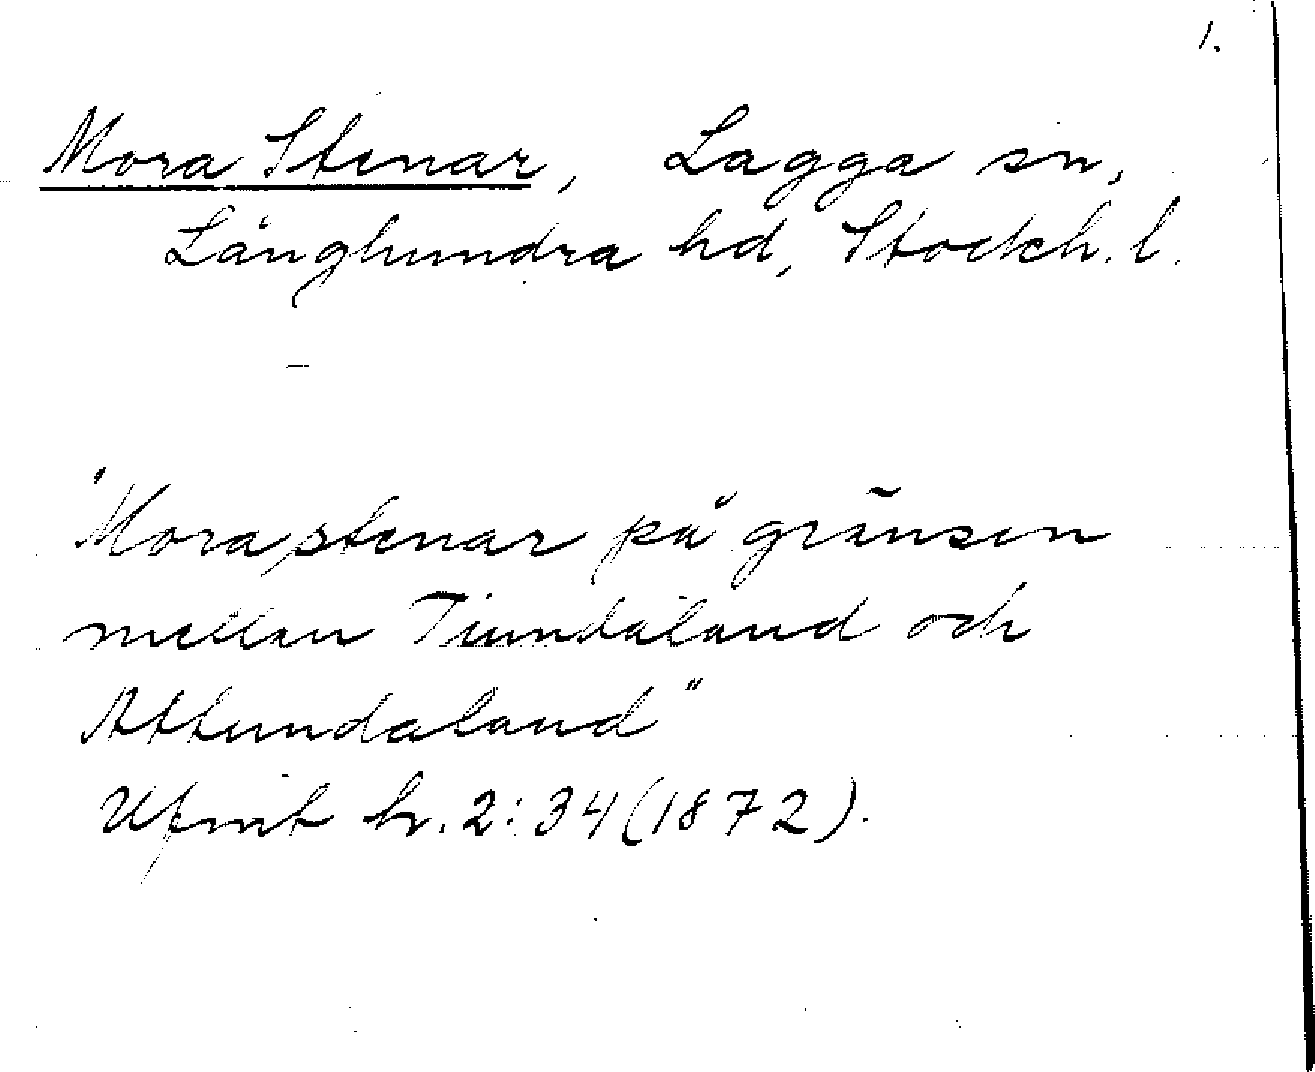 1.
Mora Stenar, Lagga sn,
Långhundra hd, Stockh. l.
"Mora stenar på gränsen
mellan Tiundaland och
Attundaland"
Ufmt h. 2:34 (1872).